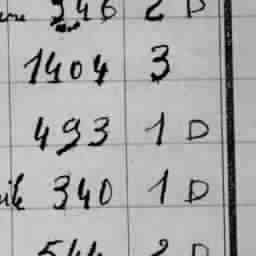 246 2 D
1404 3
493 1 D
340 1 D
544 2 D